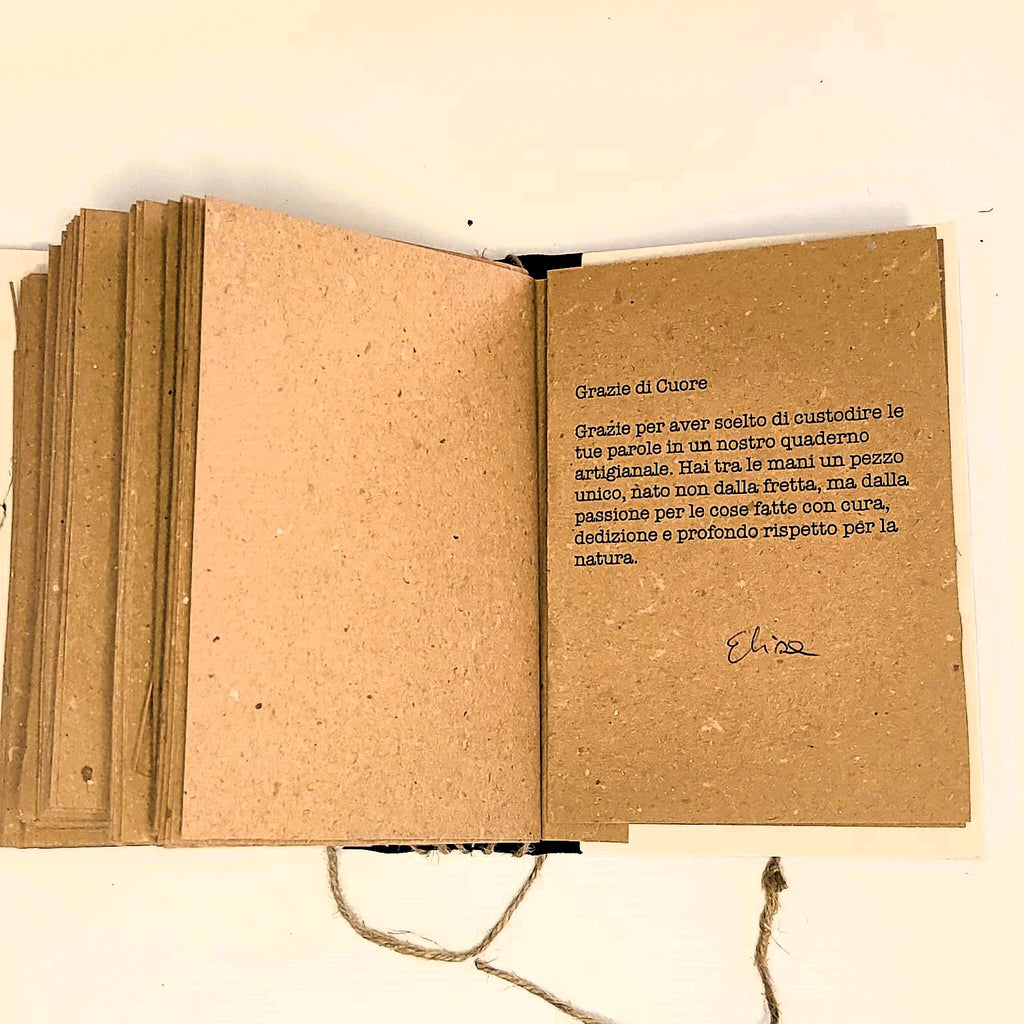 Grazie di Cuore
Grazie per aver scelto di custodire le
tue parole in un nostro quaderno
artigianale. Hai tra le mani un pezzo
unico, nato non dalla fretta, ma dalla
passione per le cose fatte con cura,
dedizione e profondo rispetto per la
natura.
Elisa